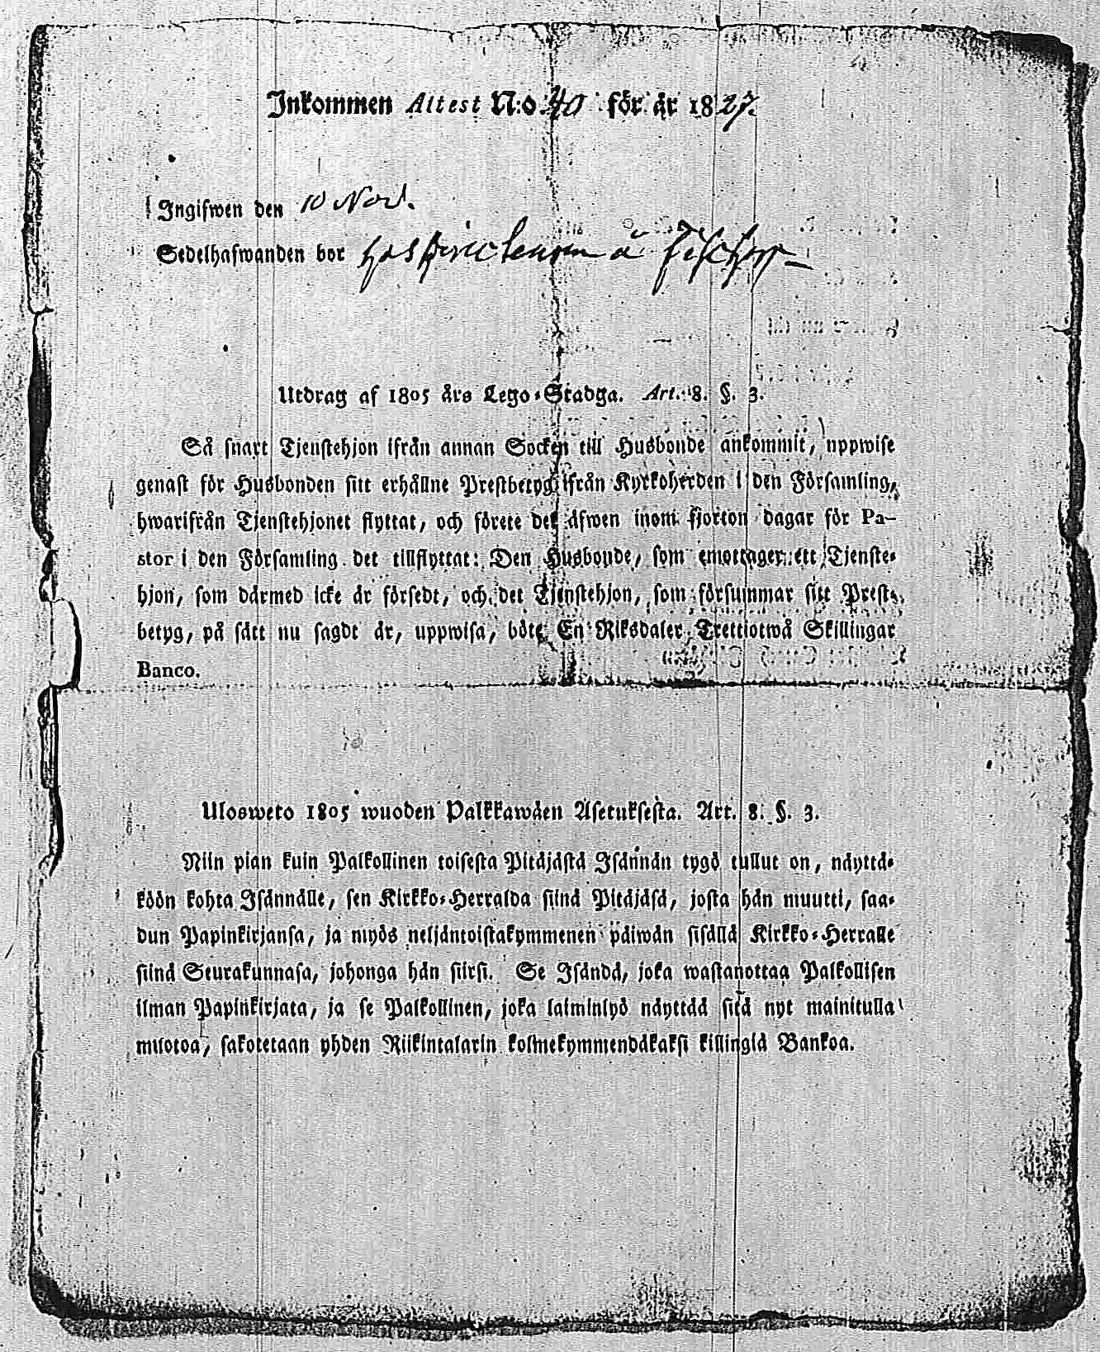 Inkommen Attest N:o 40 för år 1827.
Ingifwen den 10 Nov.
Sedelhafwanden bor hos
Utdrag af 1805 års Lego-Stadga. Art. 8. §. 3.
Så snart Tjenstehjon ifrån annan Socken till Husbonde ankommit, uppwise
genast för Husbonden sitt erhållne Prestbetyg ifrån Kyrkoherden i den Församling,
hwarifrån Tjenstehjonet flyttat, och förete det äfwen inom fjorton dagar för Pa-
stor i den Församling det tillflyttat: Den Husbonde, som emottager ett Tjenste-
hjon, som därmed icke är försedt, och det Tjenstehjon, som försummar sitt Prest-
betyg, på sätt nu sagdt är, uppwisa, böte En Riksdaler Trettiotwå Skillingar
Banco.
Ulosweto 1805 wuoden Palkkawäen Asetuksesta. Art. 8. §. 3.
Niin pian kuin Palkollinen toisesta Pitäjästä Isännän tygö tullut on, näyttä-
köön kohta Isännälle, sen Kirkko-Herralda siinä Pitäjäsä, josta hän muutti, saa-
dun Papinkirjansa, ja myös neljäntoistakymmenen päiwän sisällä Kirkko-Herralle
siinä Seurakunnasa, johonga hän siirsi. Se Isändä, joka wastanottaa Palkollisen
ilman Papinkirjata, ja se Palkollinen, joka laiminlyö näyttää sitä nyt mainitulla
muotoa, sakotetaan yhden Riikintalarin kolmekymmendäkaksi killingiä Bankoa.